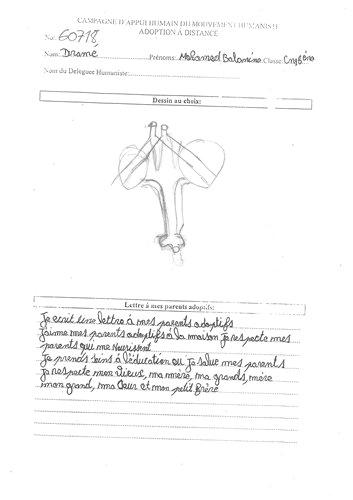 CAMPAGNE D'APPUI HUMAIN DU MOUVEMENT HUMANISTE
ADOPTION À DISTANCE
No: 60718
Nom: Dramé Prénoms: Mohamed Balamine Classe:
Nom du Delegue Humaniste:
Dessin au choix:
Lettre à mes parents adoptifs:
Je ecrit une lettre á mes parents adoptifs
J'aime mes parents adoptifs à la maison Je respecte mes
parents qui me Nourissent
Je prends soins á l'éducation ou Je salue mes parents
Je respecte mon vieux, ma mère, ma grands, mère
mon grand, ma Cœur et mon petit frère